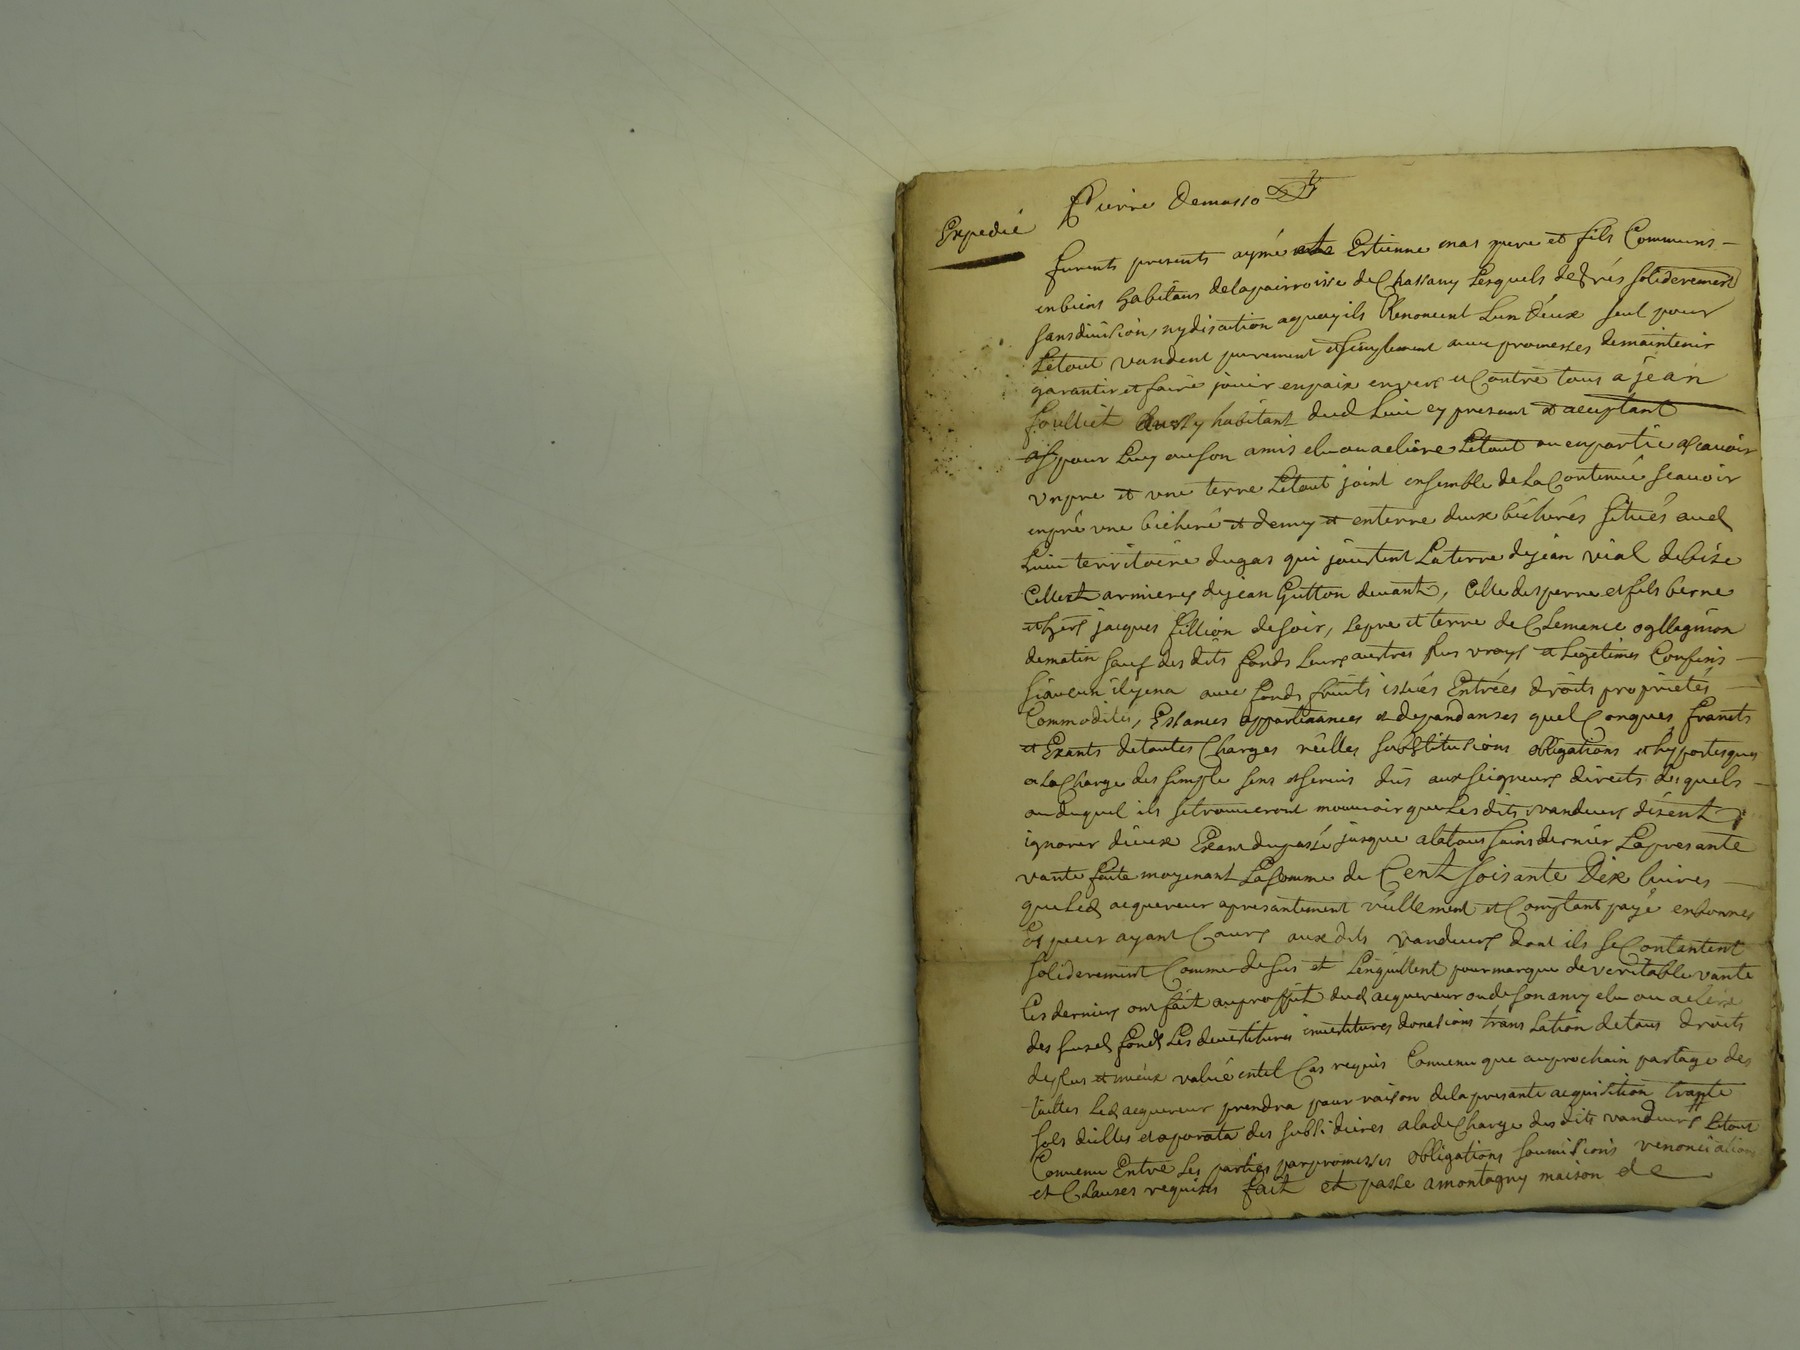 Pierre Demasso
Expedié
furents presents aymé Estienne mas pere et fils Communs
en biens habitans delaparroisse de Chassany Lesquels de grés soliderement
sans division, ny discution aquoy ils Renoncent Lun deux seul pour
Letout vandent purement et simplement avec promesses demaintenir
garantir et faire jouir enpaix envers et Contre tous a jean
foulliet aussy habitant dud Lieu cy present et acceptant
pour Luy ou son amis elu ou aelire Letout ou enpartie ascavoir
un pre et une terre Letout joint ensemble dela Contenue scavoir
enpré une bicheré et demy et enterre deux bicherés situés aud
Lieu territoire dugas qui jouxtent Laterre dejean vial debize
Celle dejean Gutton devant, Celle des perre et fils berne
jacques fillion desoir, Lepre et terre de Clemance
dematin sauf des dits fonds Leurs austres plus vrays et Legitimes Confins
siaucun ilyena avec fonds fruits issües Entrées droits proprietés
Commodités, Esiances appartinances et depandanses quelConques francts
et Exants detoutes Charges réelles substitutions obligations et hyportesques
a laCharge des simple sens et servis dus aux seigneurs directs desquels
ou duquel ils setrouveront mouvoir que Lesdits vandeurs disent
ignorer diceux Exant dupassé jusque alatoussains dernier Lapresante
vante faite moyenant Lasomme de Cent soisante Dix livres
que Led acquereur apresantement réellement et Comptant payé enbonnes
Especes ayant Cours aux dits vandeurs dont ils seContantent
soliderement Comme desus et Lenquittent pour marque de veritable vante
Ces derniers ont fait auproffit dud acquereur ou de son amy elu ou aelire
des susd fonds Les devestitures investitures donasions translation detous droits
deplus et mieux value entel Cas requis Convenu que auprochain partage des
tailles Led acquereur prendra pour raison delapresante acquisition trante
sols dicelles et aporata des subsidieres ala deCharge des dits vandeurs Letout
Convenu Entre Les parties par promesses obligations soumissions renonciations
et Clauses requises fait et passé amontagny maison de